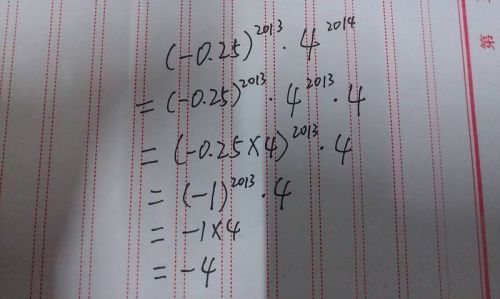 (-0.25)²⁰¹³ · 4²⁰¹⁴
= (-0.25)²⁰¹³ · 4²⁰¹³ · 4
= (-0.25×4)²⁰¹³ · 4
= (-1)²⁰¹³ · 4
= -1×4
= -4
第